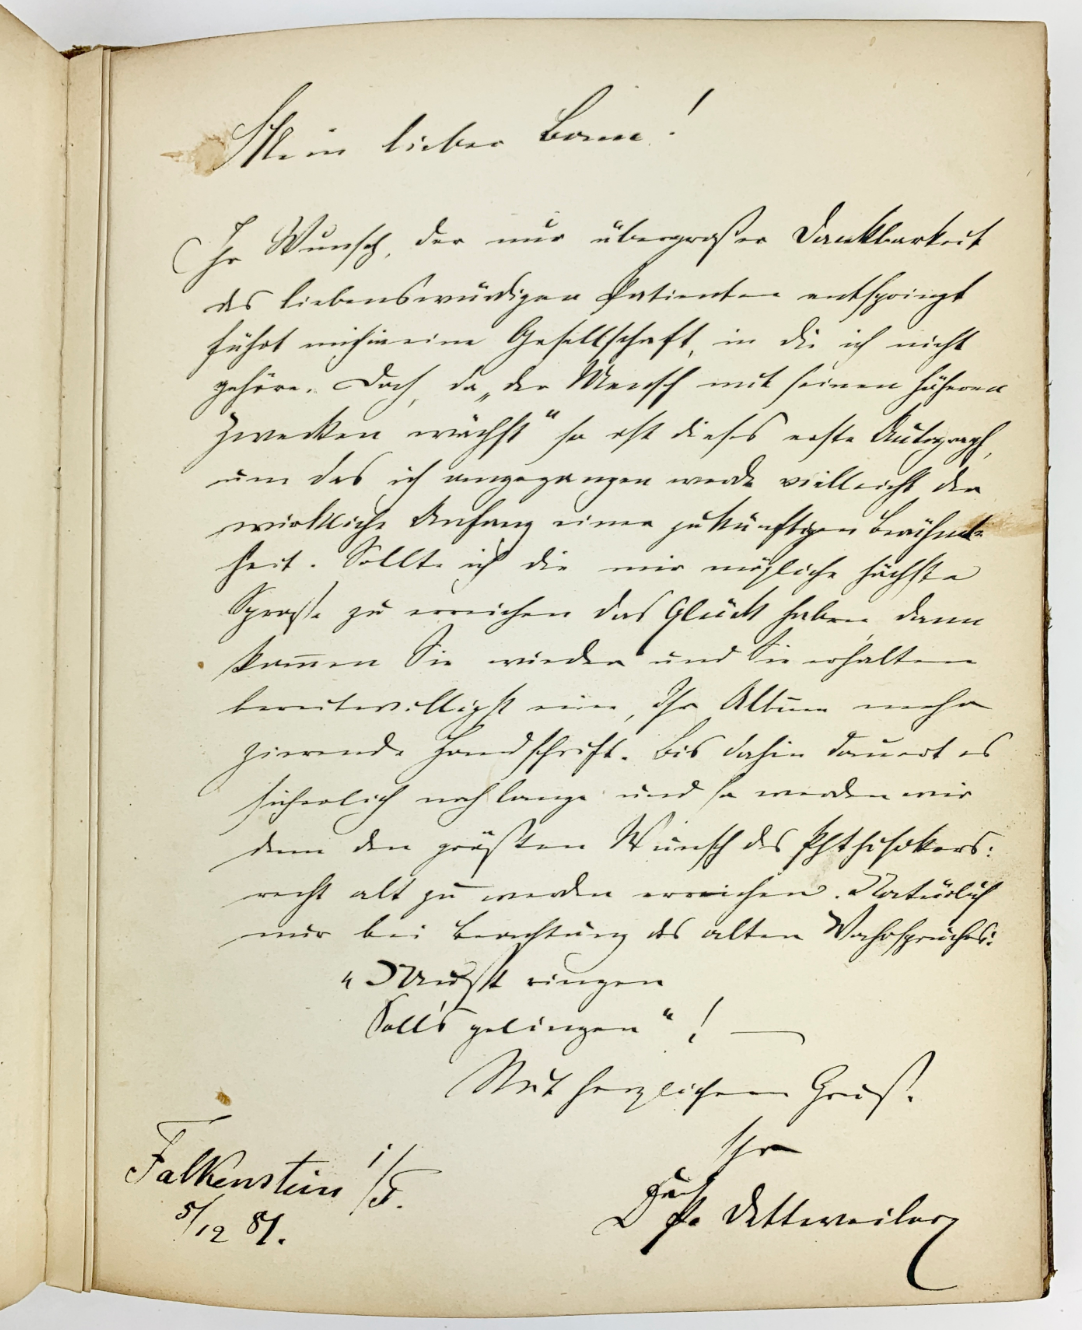 Mein lieber Born!
Ihr Wunsch, der nur übergroßer Dankbarkeit
des liebenswürdigen Patienten entspringt
führt mich in eine Gesellschaft, in die ich nicht
gehöre. Doch, da „der Mensch mit seinen höheren
Zwecken wächst“ so ist dieses erste Autograph,
um das ich angegangen werde vielleicht der
wirkliche Anfang einer zukünftigen Berühmt-
heit. Sollte ich die mir mögliche höchste
Sprosse zu erreichen das Glück haben, dann
kom̄en Sie wieder und Sie erhalten
bereitwilligst eine, Ihr Album mehr
zierende Handschrift. Bis dahin dauert es
sicherlich noch lange und so werden wir
denn den größten Wunsch des Phthisikers:
recht alt zu werden erreichen. Natürlich
nur bei Beachtung des alten Wahrspruches:
„Mußt ringen
Soll's gelingen“! —
Mit herzlichem Gruß.
Ihr
Dr Dettweiler
Falkenstein i/T.
5/12 81.